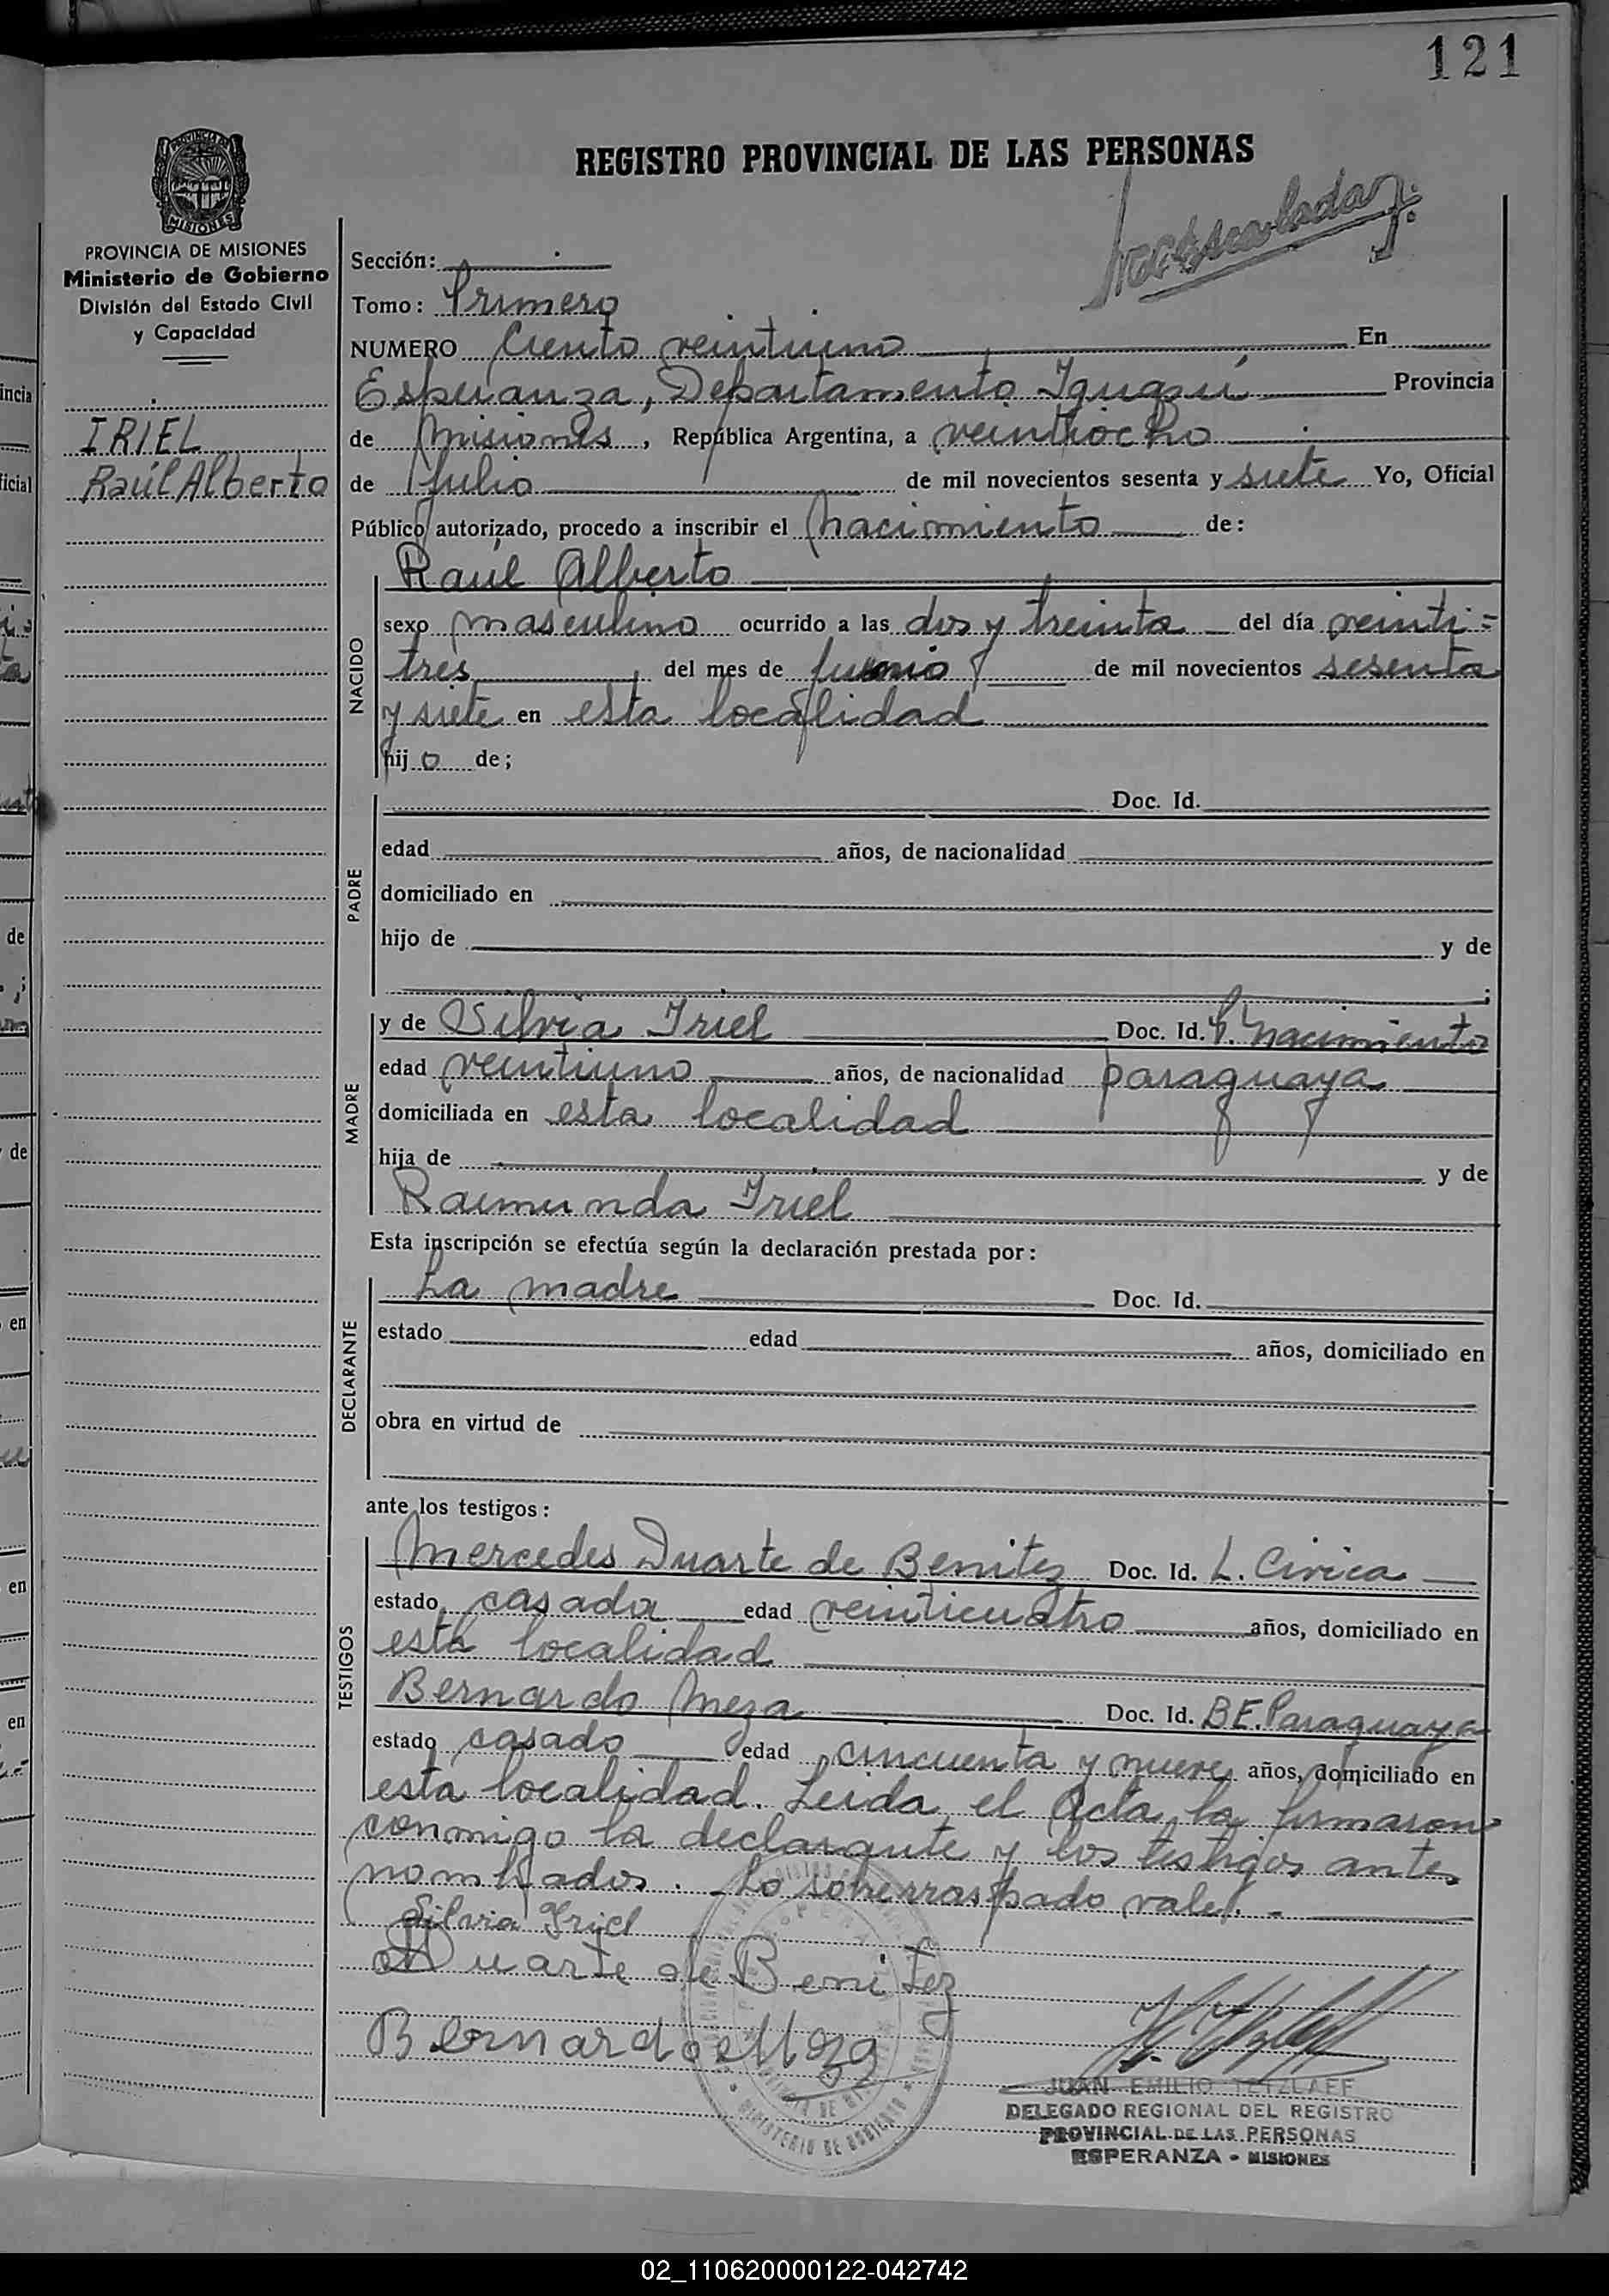 121
REGISTRO PROVINCIAL DE LAS PERSONAS
PROVINCIA DE MISIONES
Ministerio de Gobierno
División del Estado Civil
y Capacidad
IRIEL
Raúl Alberto
Sección:
Tomo: Primero
NUMERO Ciento veintiuno En
Esperanza, Departamento Iguazú Provincia
de Misiones, República Argentina, a veintiocho
de Julio de mil novecientos sesenta y siete Yo, Oficial
Público autorizado, procedo a inscribir el nacimiento de:
Raúl Alberto
NACIDO
sexo masculino ocurrido a las dos y treinta del día veinti=
tres del mes de junio de mil novecientos sesenta
y siete en esta localidad
hijo de;
PADRE
Doc. Id.
edad años, de nacionalidad
domiciliado en
hijo de y de
;
MADRE
y de Silvia Iriel Doc. Id. P. nacimiento
edad veintiuno años, de nacionalidad paraguaya
domiciliada en esta localidad
hija de y de
Raimunda Iriel
Esta inscripción se efectúa según la declaración prestada por:
DECLARANTE
La madre Doc. Id.
estado edad años, domiciliado en
obra en virtud de
ante los testigos:
TESTIGOS
Mercedes Duarte de Benitez Doc. Id. L. Civica
estado casada edad veinticuatro años, domiciliado en
esta localidad
Bernardo Meza Doc. Id. BE. Paraguaya
estado casado edad cincuenta y nueve años, domiciliado en
esta localidad. Leida el Acta, la firmaron
conmigo la declarante y los testigos antes
nombrados. Lo sobrerraspado vale. -
Silvia Iriel
M Duarte de Benitez
Bernardo Meza
MINISTERIO DE GOBIERNO
JUAN EMILIO TETZLAFF
DELEGADO REGIONAL DEL REGISTRO
PROVINCIAL DE LAS PERSONAS
ESPERANZA - MISIONES
02_110620000122-042742